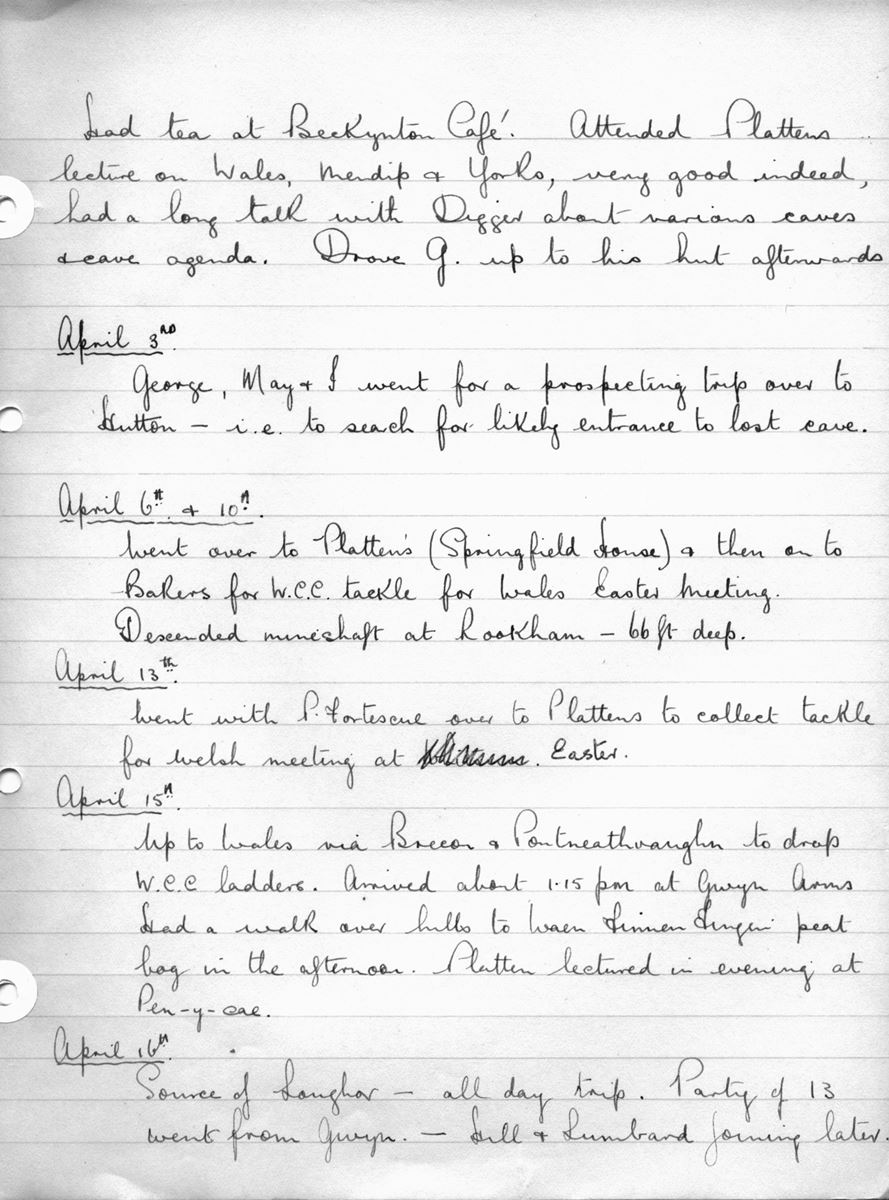 Had tea at Beckynton Café. Attended Plattens
lecture on Wales, Mendip & Yorks, very good indeed,
had a long talk with Digger about various caves
& cave agenda. Drove G. up to his hut afterwards
April 3RD.
George, May & I went for a prospecting trip over to
Hutton – i.e. to search for likely entrance to lost cave.
April 6th. & 10th.
Went over to Platten's (Springfield House) & then on to
Bakers for W.C.C. tackle for Wales Easter Meeting.
Descended mineshaft at Rookham – 66 ft deep.
April 13th.
Went with P. Fortescue over to Plattens to collect tackle
for welsh meeting at Easter.
April 15th.
Up to Wales via Brecon & Pontneathvaughn to drop
W.C.C ladders. Arrived about 1.15 pm at Gwyn Arms
Had a walk over hills to Waen peat
bog in the afternoon. Platten lectured in evening at
Pen-y-cae.
April 16th.
Source of Loughor – all day trip. Party of 13
went from Gwyn. – Hill & Lumbard joining later.